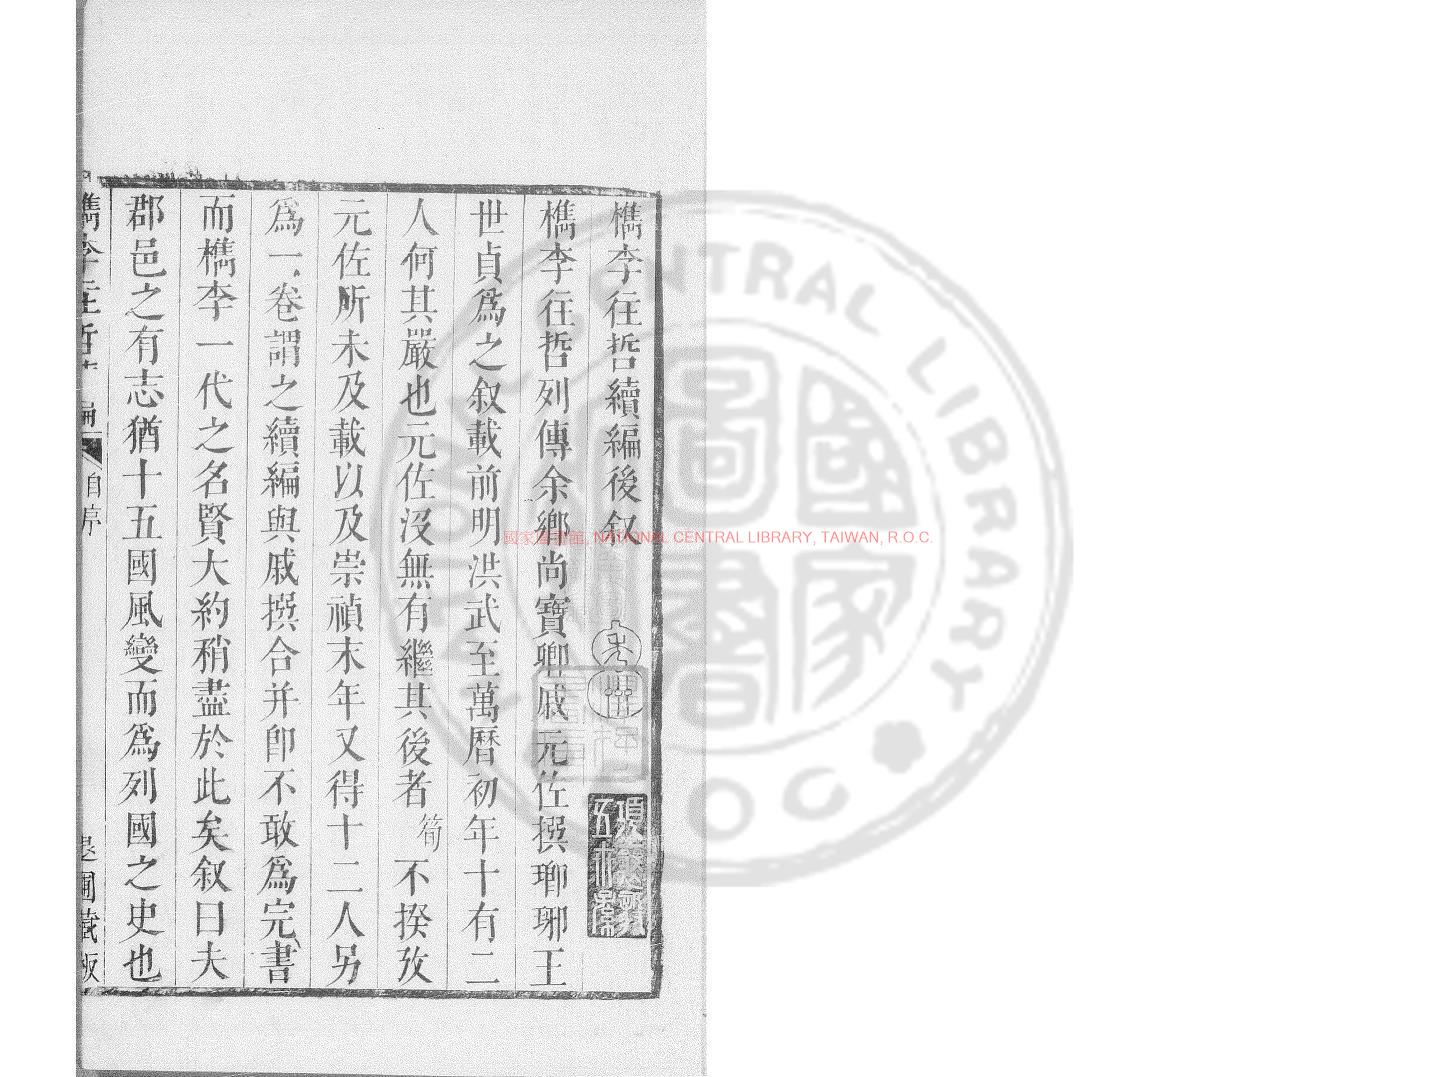 檇李往哲續編後叙
檇李往哲列傳余鄉尚寶卿戚元佐撰瑯琊王
世貞爲之叙載前明洪武至萬曆初年十有二
人何其嚴也元佐沒無有繼其後者筍不揆攷
元佐所未及載以及崇禎末年又得十二人另
爲一卷謂之續編與戚撰合并卽不敢爲完書
而檇李一代之名賢大約稍盡於此矣叙曰夫
郡邑之有志猶十五國風變而爲列國之史也
檇李往哲 編
自序
退圃藏板
國家圖書館, NATIONAL CENTRAL LIBRARY, TAIWAN, R.O.C.